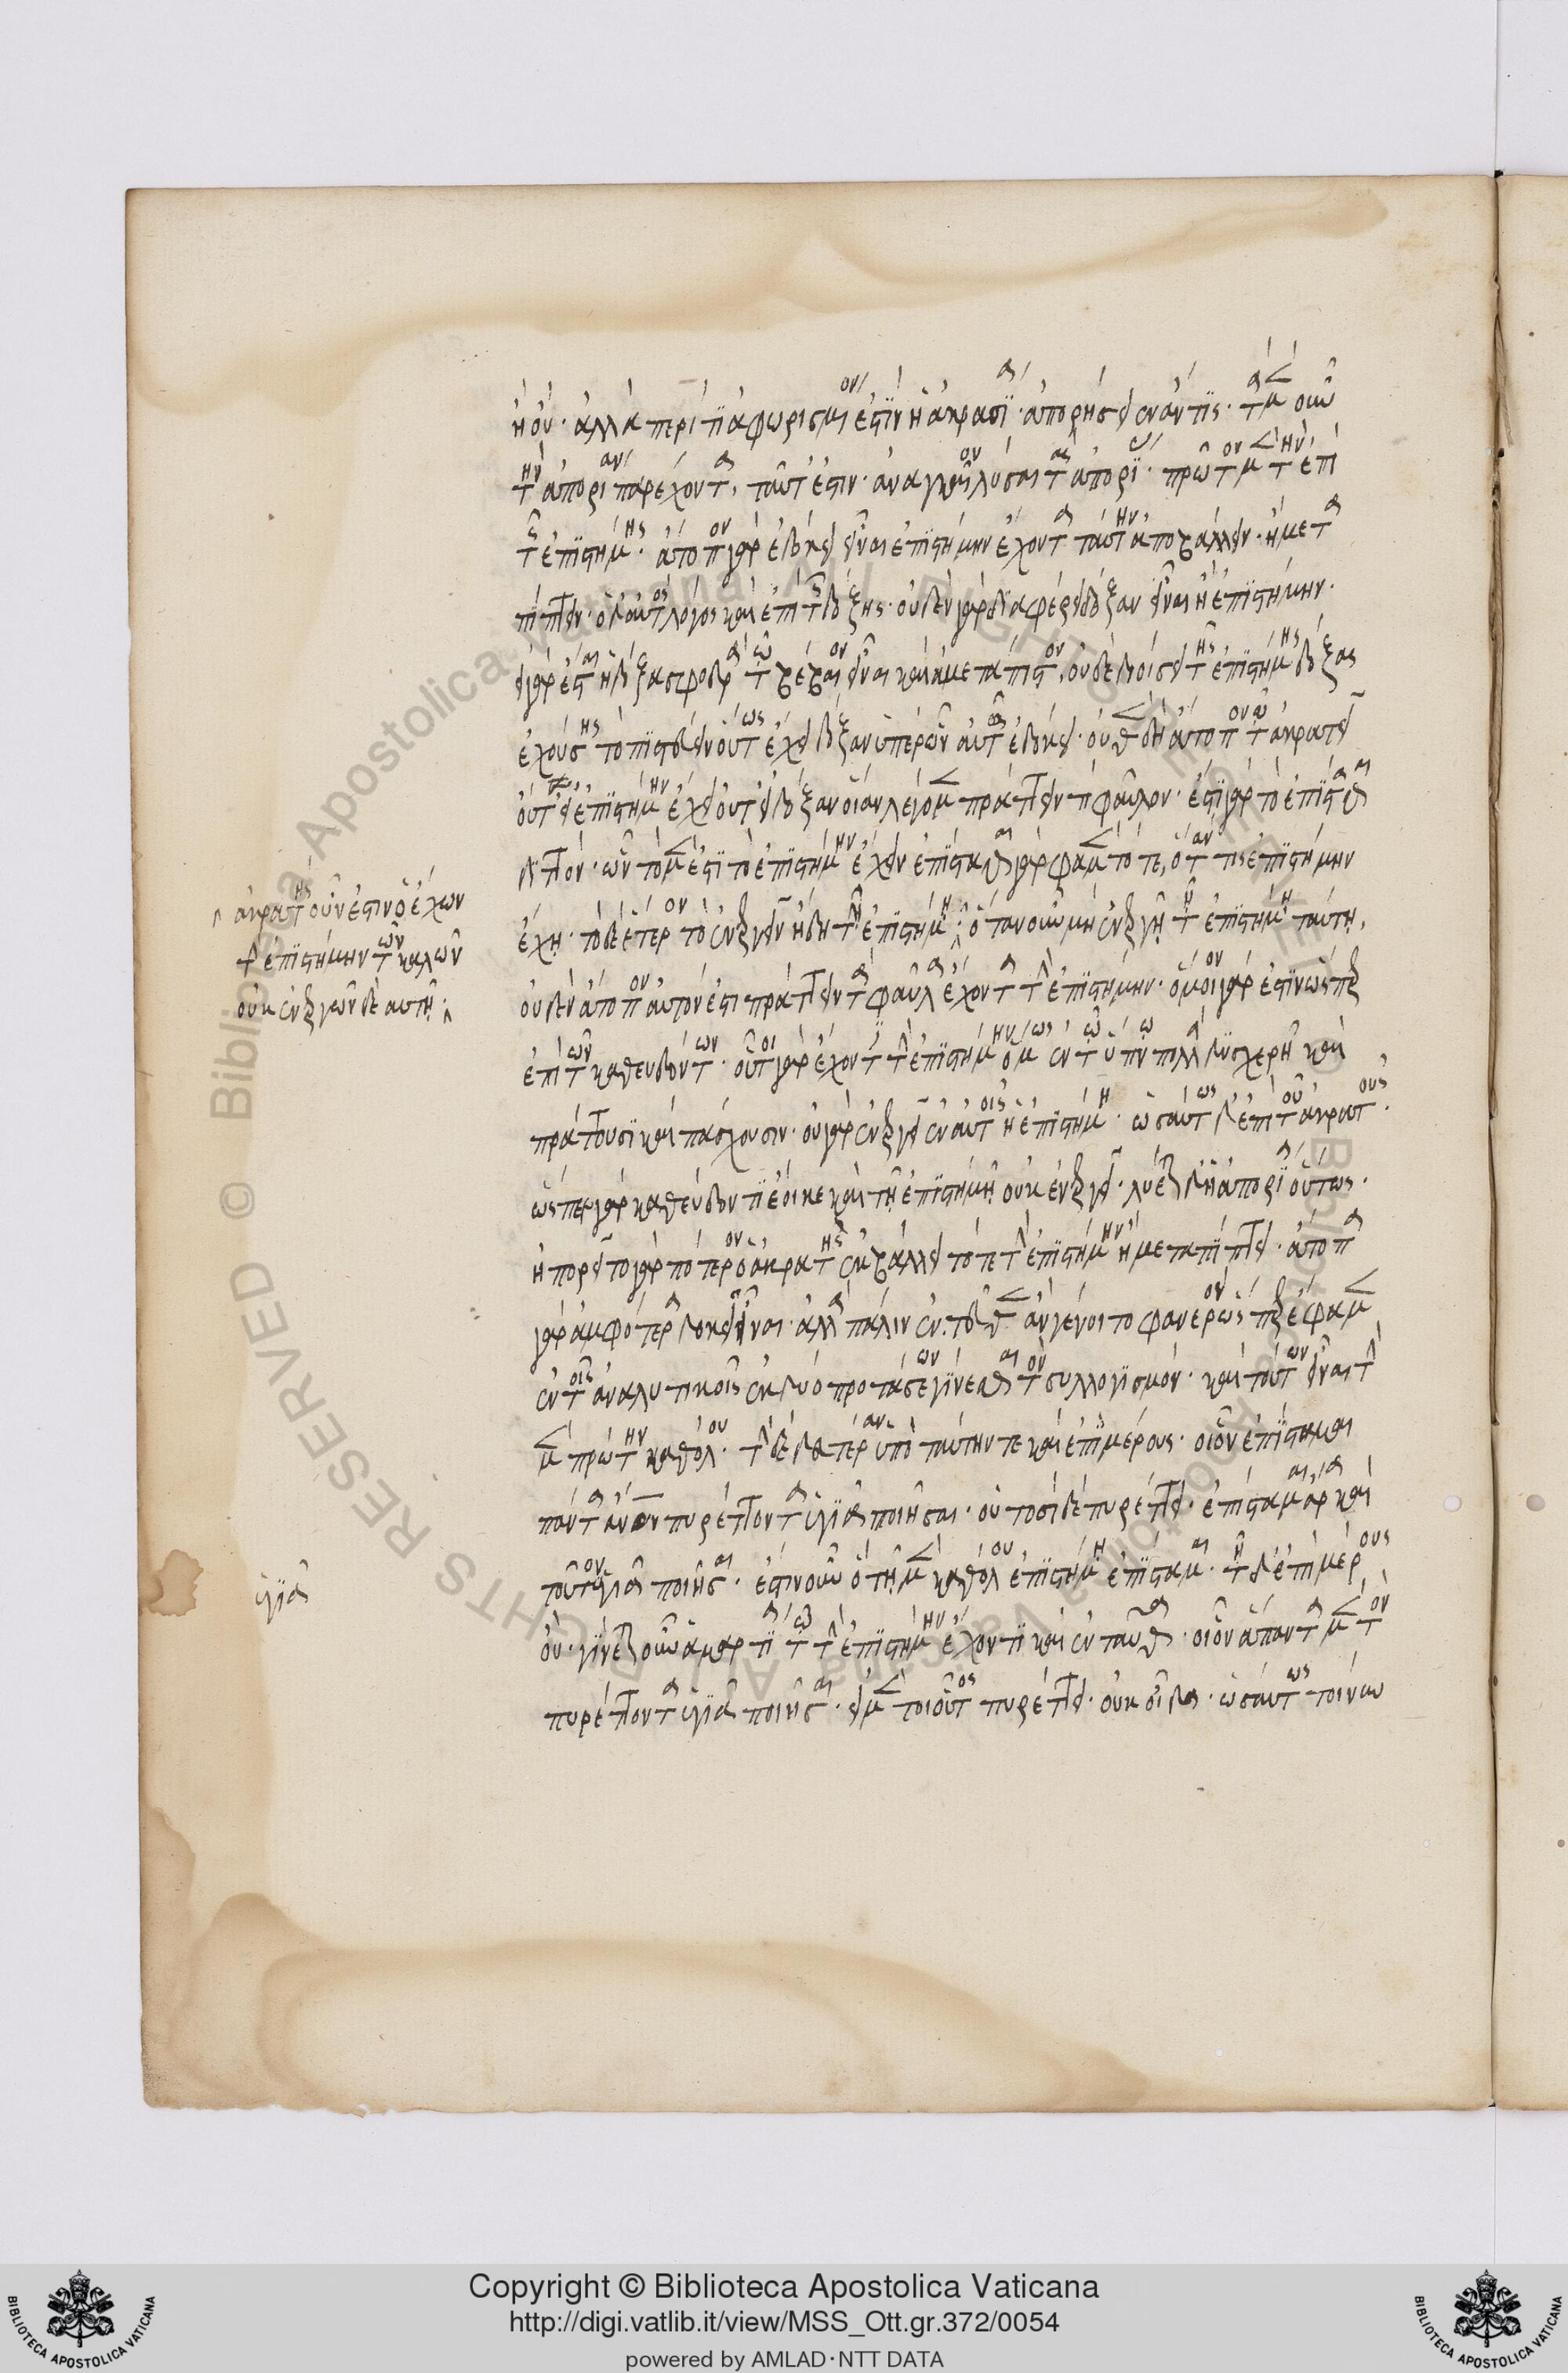 ἢ οὔ. ἀλλὰ περὶ τί ἀφωρισμένον ἐστὶν ἡ ἀκρασία ἀπορήσειεν ἄν τις. τὰ μὲν οὖν
τὴν ἀπορίαν παρέχοντα, ταῦτ' ἐστίν. ἀναγκαῖον λῦσαι τὰς ἀπορίας. πρῶτον μὲν τὴν ἐπὶ
τῆς ἐπιστήμης. ἄτοπον γὰρ ἐδόκει εἶναι ἐπιστήμην ἔχοντα ταύτην ἀποβάλλειν. ἢ μετα
πίπτειν. ὁ δ' αὐτὸς λόγος καὶ ἐπὶ τῆς δόξης. οὐδὲν γὰρ διαφέρει δόξαν εἶναι ἢ ἐπιστήμην.
εἰ γὰρ ἔσται ἡ δόξα σφοδρὰ τῷ βέβαιον εἶναι καὶ ἀμετάπιστον, οὐδὲν διοίσει τῆς ἐπιστήμης δόξας
ἐχούσης τὸ πιστεύειν οὕτως ἔχειν δόξαν ὑπὲρ ὧν αὐτοῖς ἐδόκει.
οὔτ' εἰ ἐπιστήμην ἔχει οὔτ' εἰ δόξαν οἵαν λέγομεν πράττειν τι φαῦλον. ἔστι γὰρ τὸ ἐπίστασθαι
διττόν. ὧν τὸ μέν ἐστι τὸ ἐπιστήμην ἔχειν ἐπίστασθαι γάρ φαμεν τότε, ὅταν τις ἐπιστήμην
ἔχῃ. τὸ δὲ ἕτερον τὸ ἐνεργεῖν ἤδη τῇ ἐπιστήμῃ. ὅταν οὖν μὴ ἐνεργῇ τῇ ἐπιστήμῃ ταύτῃ,
οὐδὲν ἄτοπον αὐτόν ἐστι πράττειν τὰ φαῦλα ἔχοντα τὴν ἐπιστήμην. ὅμοιον γάρ ἐστιν ὥσπερ
ἐπὶ τῶν καθευδόντων. οὗτοι γὰρ ἔχοντες τὴν ἐπιστήμην ὅμως ἐν τῷ ὕπνῳ πολλὰ δυσχερῆ καὶ
πράττουσι καὶ πάσχουσιν. οὐ γὰρ ἐνεργεῖ ἐν αὐτοῖς ἡ ἐπιστήμη. ὡσαύτως δ' ἐπὶ τοῦ ἀκρατοῦς.
ὥσπερ γὰρ καθεύδοντι ἔοικε καὶ τῇ ἐπιστήμῃ οὐκ ἐνεργεῖ. λύεται δὴ ἡ ἀπορία οὕτως.
ἠπορεῖτο γὰρ πότερον ὁ ἀκρατὴς ἐκβάλλει τότε τὴν ἐπιστήμην ἢ μεταπίπτει. ἄτοπα
γὰρ ἀμφότερα δοκεῖ εἶναι. ἀλλὰ πάλιν ἐντεῦθεν ἂν γένοιτο φανερὸν ὥσπερ ἔφαμεν
ἐν τοῖς ἀναλυτικοῖς ἐκ δύο προτάσεων γίνεσθαι τὸν συλλογισμόν. καὶ τούτων εἶναι τὴν
μὲν πρώτην καθόλου. τὴν δὲ δευτέραν ὑπὸ ταύτην τε καὶ ἐπὶ μέρους. οἷον ἐπίσταμαι
πάντα ἄνθρωπον πυρέττοντα ὑγιᾶ ποιῆσαι. οὑτοσὶ δὲ πυρέττει. ἐπίσταμαι ἄρα καὶ
τοῦτον ὑγιᾶ ποιῆσαι. ἔστιν οὖν ὃ τῇ μὲν καθόλου ἐπιστήμῃ ἐπίσταμαι. τῇ δ' ἐπὶ μέρους
οὔ. γίνεται οὖν ἁμαρτία τῷ τὴν ἐπιστήμην ἔχοντι καὶ ἐνταῦθα. οἷον ἅπαντα μὲν τὸν
πυρέττοντα ὑγιᾶ ποιῆσαι. εἰ μέντοι οὗτος πυρέττει. οὐκ οἶδα. ὡσαύτως τοίνυν
ἀκρατὴς οὖν ἐστιν ὁ ἔχων
τὴν ἐπιστήμην τῶν καλῶν
οὐκ ἐνεργῶν δὲ αὐτῇ.
ὑγιᾶ
Copyright © Biblioteca Apostolica Vaticana
http://digi.vatlib.it/view/MSS_Ott.gr.372/0054
powered by AMLAD·NTT DATA